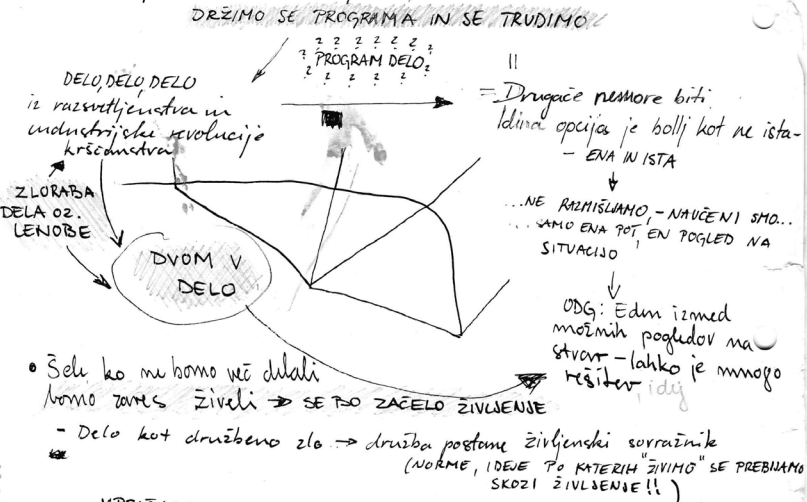 DRŽIMO SE PROGRAMA IN SE TRUDIMO
? ? ? ? ? ?
? PROGRAM DELO ?
? ? ? ? ? ?
DELO, DELO, DELO
iz razsvetljenstva in
industrijske revolucije
krščanstva
ZLORABA
DELA OZ.
LENOBE
DVOM V
DELO
=
- Drugače nemore biti
Idina opcija je bollj kot ne ista -
- ENA IN ISTA
...NE RAZMIŠLJAMO, - NAUČENI SMO...
...SAMO ENA POT, EN POGLED NA
SITUACIJO
ODG: Eden izmed
možnih pogledov na
stvar - lahko je mnogo
rešitev, idej
• Šele ko ne bomo več delali
bomo zares živeli → SE BO ZAČELO ŽIVLJENJE
- Delo kot družbeno zlo → družba postane življenski sovražnik
(NORME, IDEJE PO KATERIH "ŽIVIMO" SE PREBIJAMO
SKOZI ŽIVLJENJE!!)